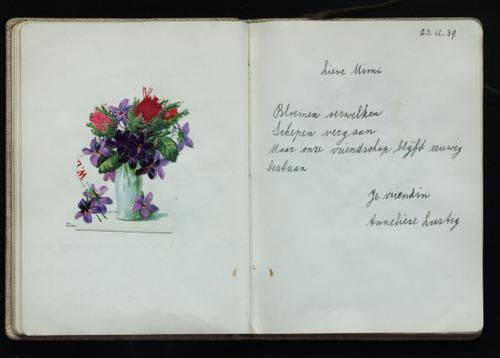 23.12.39
Lieve Mimi
Bloemen verwelken
Schepen vergaan
Maar onze vriendschap blijft eeuwig
bestaan
Je vriendin
Anneliese Lustig